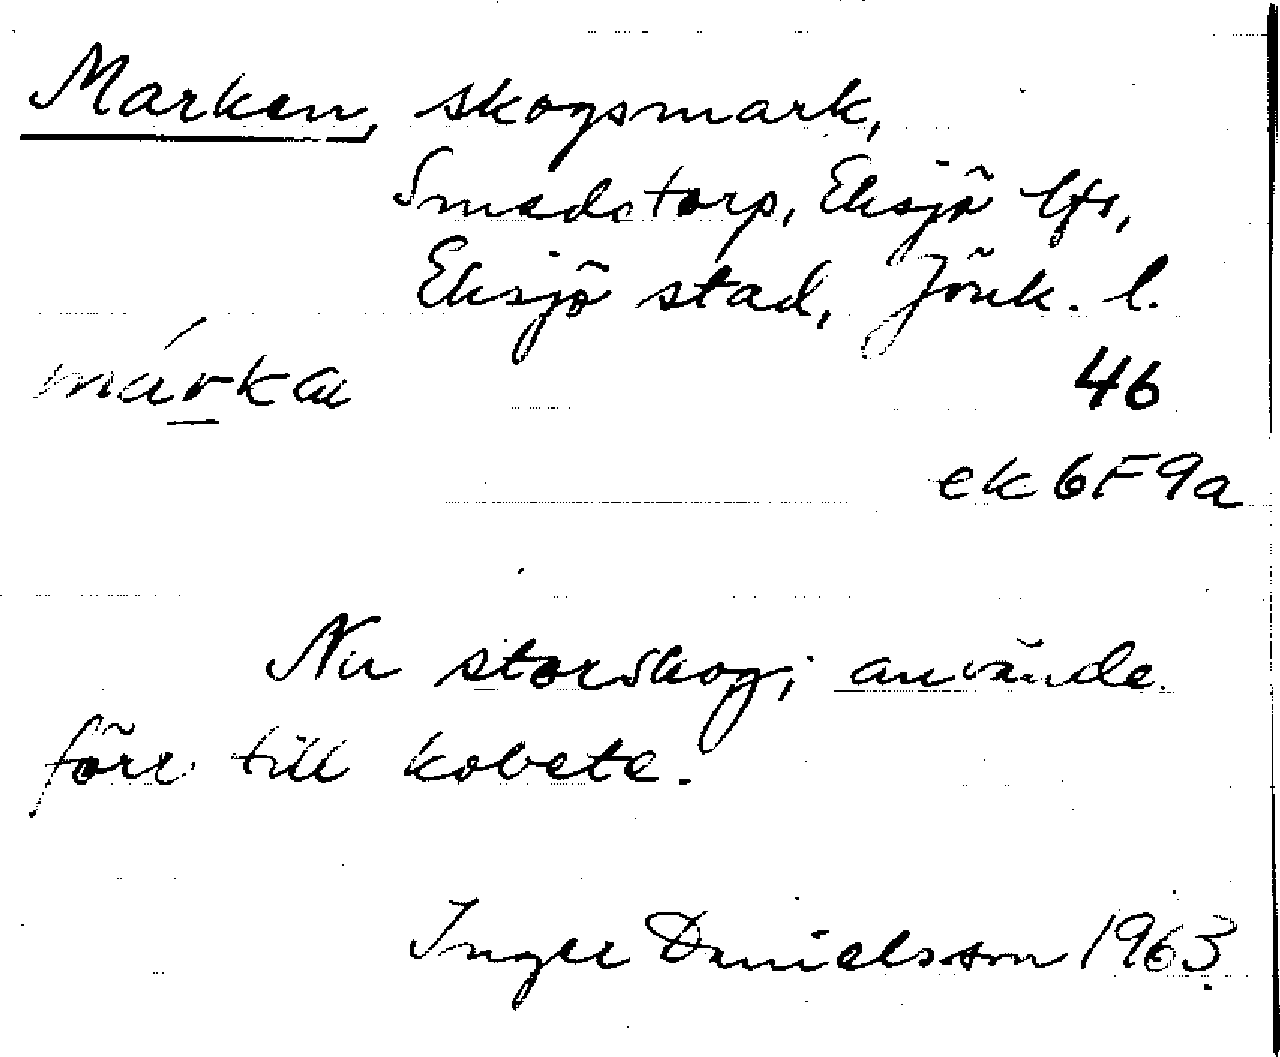 Marken, skogsmark,
Smedstorp, Eksjö lfs,
Eksjö stad, Jönk. l.
márkæ 46
ek 6F9a
Nu storskog; användes
förr till kobete.
Inger Danielsson 1963